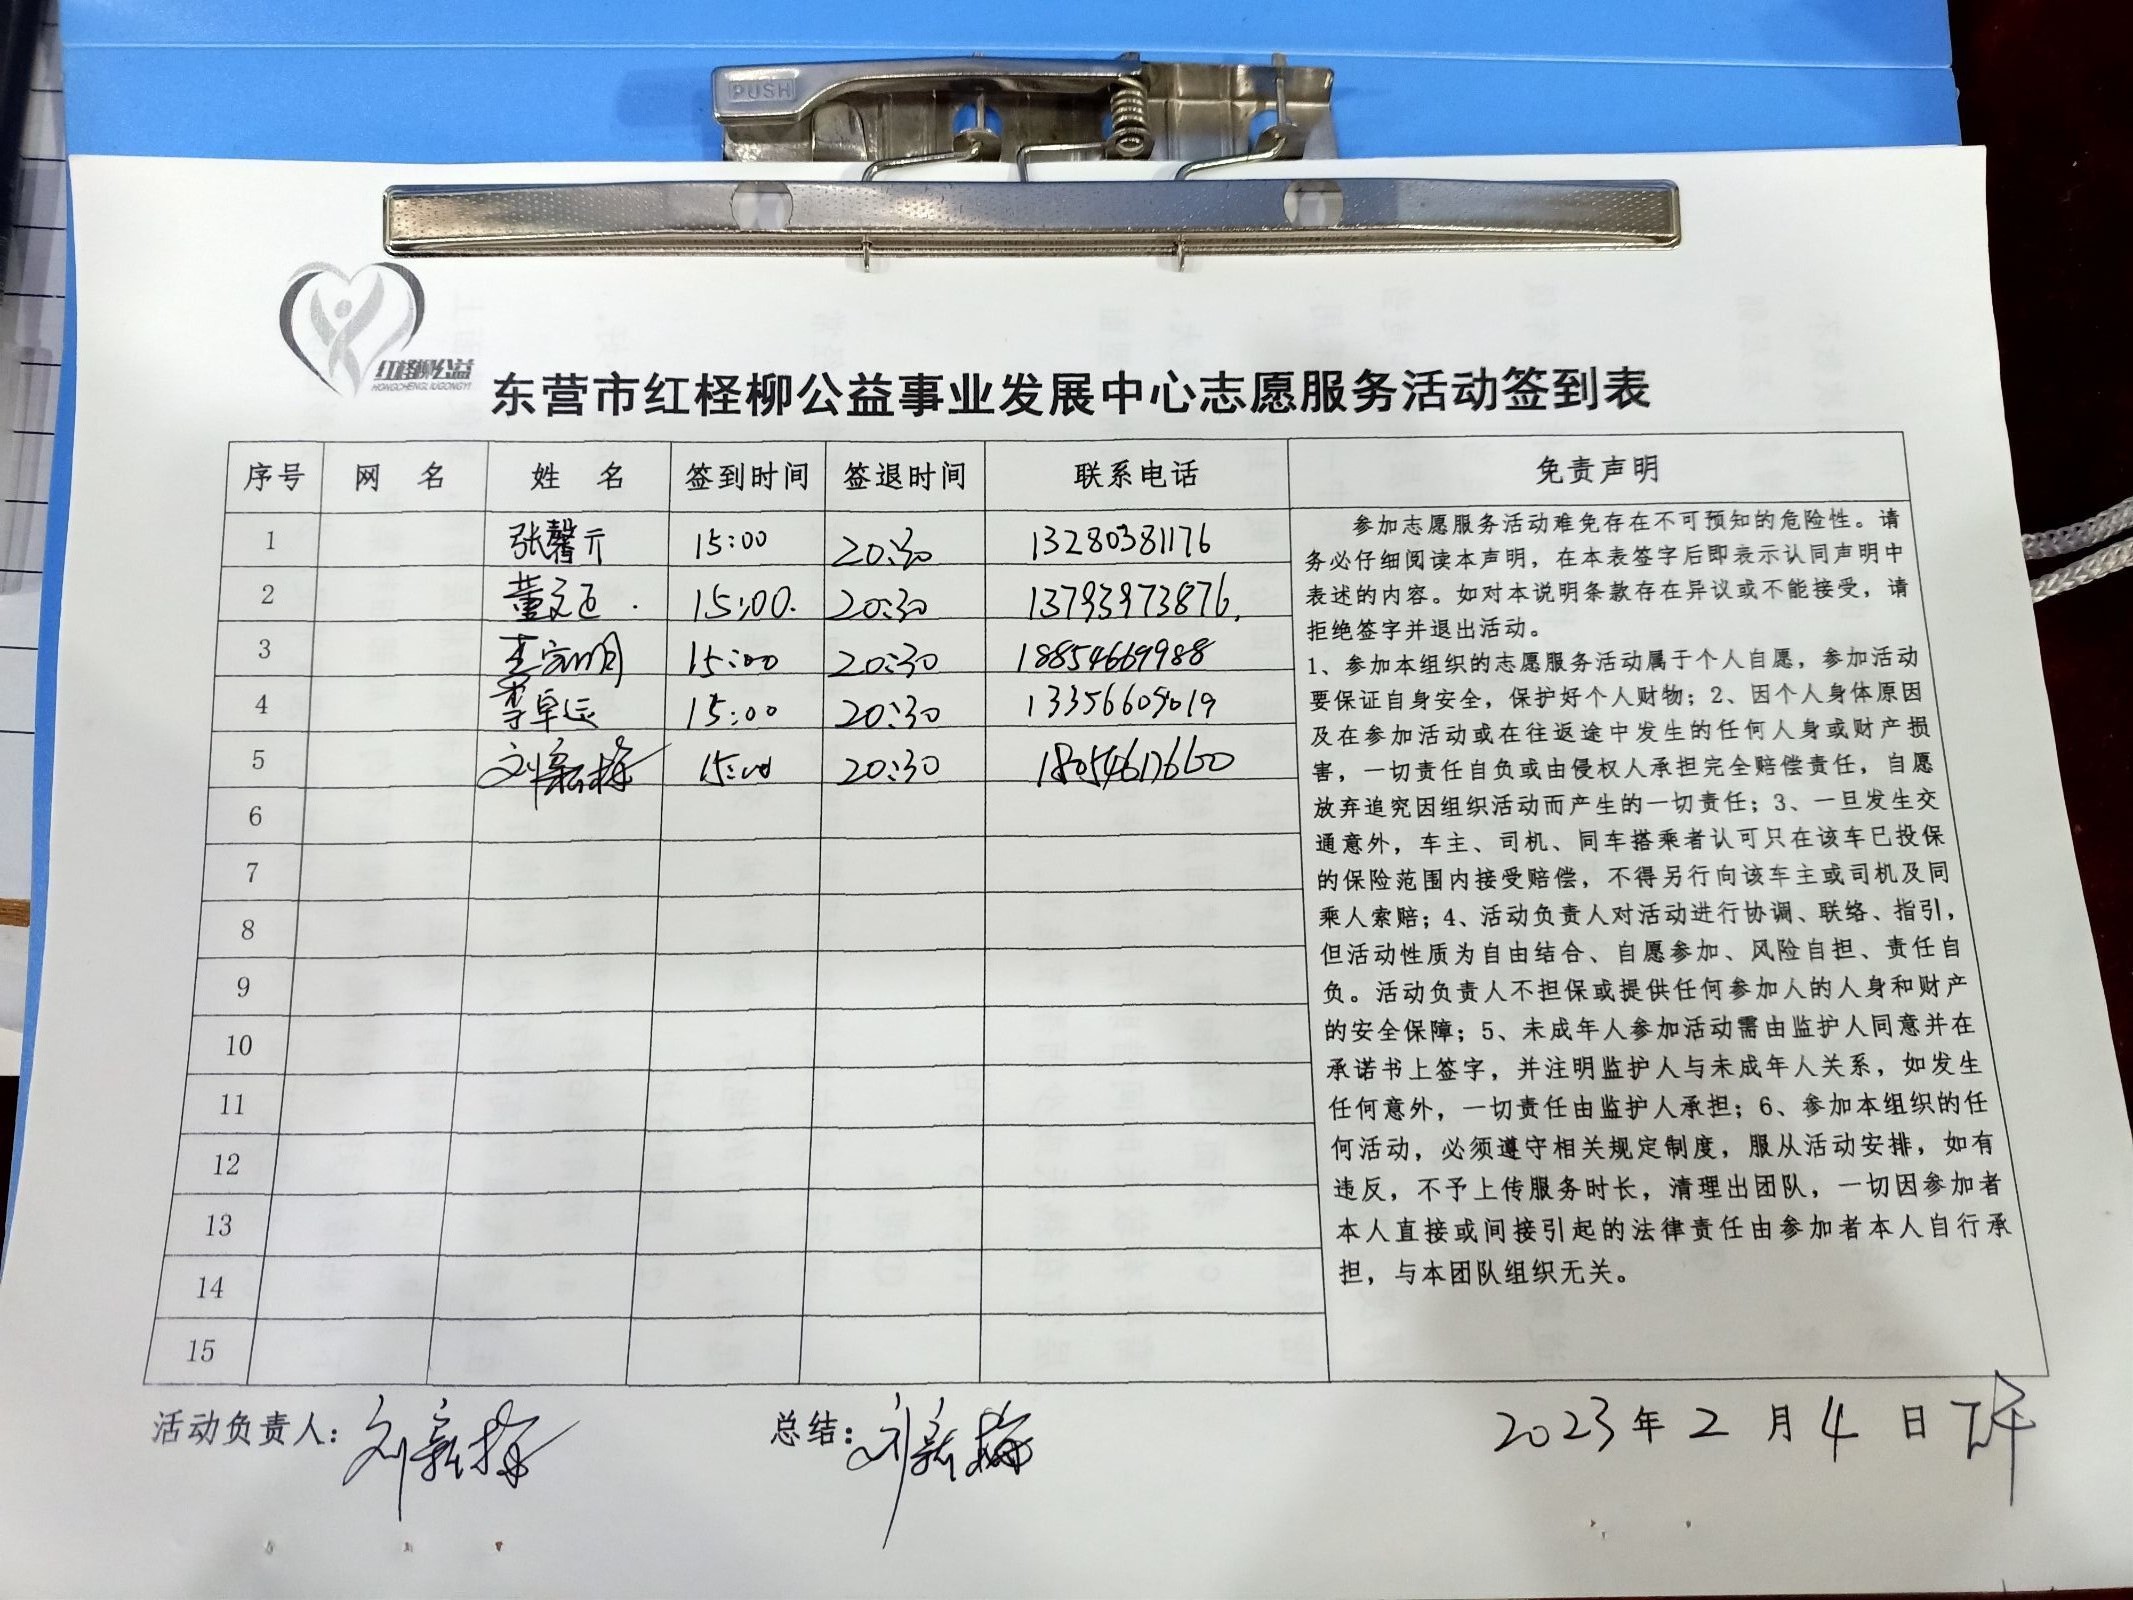 PUSH
红柽柳公益
HONGCHENGLIUGONGYI
东营市红柽柳公益事业发展中心志愿服务活动签到表
序号 网 名 姓 名 签到时间 签退时间 联系电话 免责声明
1 张馨亓 15:00 20:30 13280381176
2 董文 15:00. 20:30 13793973876.
3 李 15:00 20:30 18854669988
4 李卓运 15:00 20:30 13356605019
5 刘新梅 15:00 20:30 18054617660
6
7
8
9
10
11
12
13
14
15
参加志愿服务活动难免存在不可预知的危险性。请
务必仔细阅读本声明，在本表签字后即表示认同声明中
表述的内容。如对本说明条款存在异议或不能接受，请
拒绝签字并退出活动。
1、参加本组织的志愿服务活动属于个人自愿，参加活动
要保证自身安全，保护好个人财物；2、因个人身体原因
及在参加活动或在往返途中发生的任何人身或财产损
害，一切责任自负或由侵权人承担完全赔偿责任，自愿
放弃追究因组织活动而产生的一切责任；3、一旦发生交
通意外，车主、司机、同车搭乘者认可只在该车已投保
的保险范围内接受赔偿，不得另行向该车主或司机及同
乘人索赔；4、活动负责人对活动进行协调、联络、指引，
但活动性质为自由结合、自愿参加、风险自担、责任自
负。活动负责人不担保或提供任何参加人的人身和财产
的安全保障；5、未成年人参加活动需由监护人同意并在
承诺书上签字，并注明监护人与未成年人关系，如发生
任何意外，一切责任由监护人承担；6、参加本组织的任
何活动，必须遵守相关规定制度，服从活动安排，如有
违反，不予上传服务时长，清理出团队，一切因参加者
本人直接或间接引起的法律责任由参加者本人自行承
担，与本团队组织无关。
活动负责人：刘新梅 总结：刘新梅 2023年2月4日 下午